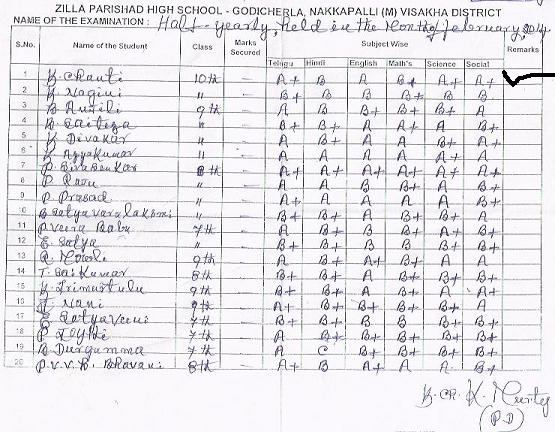 ZILLA PARISHAD HIGH SCHOOL - GODICHERLA, NAKKAPALLI (M) VISAKHA DISTRICT
NAME OF THE EXAMINATION : Half-yearly, held in the Month of february, 2014
S.No. Name of the Student Class Marks Secured Subject Wise Remarks
Telugu Hindi English Math's Science Social
1 K. Chanti 10th — A+ B A B+ A A+
2 K. Nagini " — B+ B B B+ B B
3 9th — A B B+ B+ B+ A
4 " — B+ B+ A A+ A B+
5 K. Divakar " — A B+ A A B+ A+
6 K. Ayyakumar " — A A A A A+ A
7 P. Sivasankar 8th — A+ A+ A+ A+ A+ A+
8 P. Raju " — A A B B+ A B+
9 P. Prasad " — A+ A A A A A
10 B. Satyavaralakshmi " — B+ B+ A B+ B+ A
11 P. Veera Babu 7th — A A A B+ A B+
12 E. Satya " — B+ B+ B B B+ B+
13 R. Mouli 9th — A B+ A+ B+ A A
14 T. Sai Kumar 8th — B+ B+ A B+ B+ B+
15 9th — B+ B+ A B+ A A+
16 Nani 9th — A+ B+ B+ B+ B+ A
17 E. Satyaveni 7th — B+ B+ B B B+ B+
18 P. Jyothi 7th — A B+ B+ B+ B+ B+
19 B. Durgamma 7th — A C B+ B+ B+ B+
20 P.V.V.B. Bhavani 8th — A+ B A A A B+
K. CH. K. Murty
(P.D)